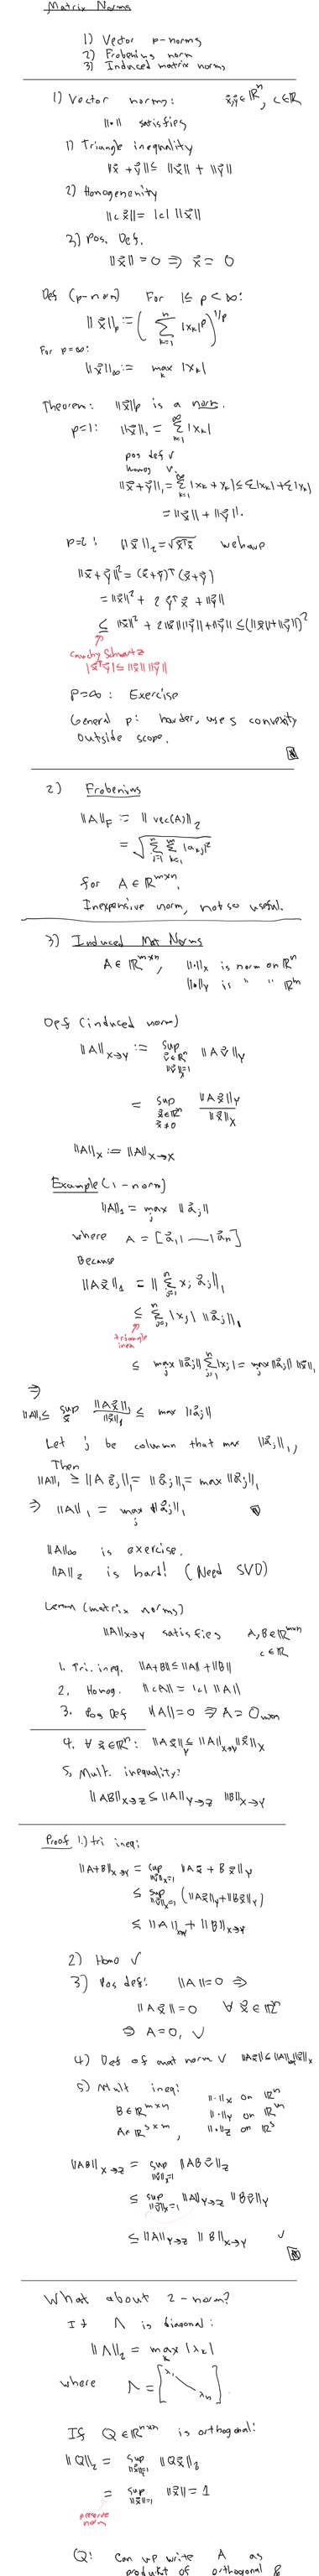 Matrix Norms
1) Vector p-norms
2) Frobenius norm
3) Induced matrix norms
1) Vector norms: x⃗,y⃗ ∈ ℝⁿ, c∈ℝ
||•|| satisfies
1) Triangle inequality
||x⃗+y⃗|| ≤ ||x⃗|| + ||y⃗||
2) Homogeneity
||c x⃗|| = |c| ||x⃗||
3) Pos. Def.
||x⃗|| = 0 ⇒ x⃗ = 0
Def (p-norm) For 1≤ p < ∞:
||x⃗||_p := ( Σ_{k=1}^n |x_k|^p )^{1/p}
For p=∞:
||x⃗||_∞ := max_k |x_k|
Theorem: ||x⃗||_p is a norm.
p=1: ||x⃗||_1 = Σ |x_k|
pos def ✓
homog ✓
||x⃗+y⃗||_1 = Σ |x_k + y_k| ≤ Σ|x_k| + Σ|y_k|
= ||x⃗|| + ||y⃗||.
p=2: ||x⃗||_2 = √(x⃗ᵀx⃗) we have
||x⃗+y⃗||² = (x⃗+y⃗)ᵀ(x⃗+y⃗)
= ||x⃗||² + 2 y⃗ᵀx⃗ + ||y⃗||
≤ ||x⃗||² + 2||x⃗|| ||y⃗|| + ||y⃗|| ≤ (||x⃗|| + ||y⃗||)²
Cauchy Schwartz
|x⃗ᵀy⃗| ≤ ||x⃗|| ||y⃗||
p=∞: Exercise
General p: harder, uses convexity
outside scope.
2) Frobenius
||A||_F := || vec(A)||_2
= √(Σ Σ |a_{kj}|²)
for A ∈ ℝ^{m×n}.
Inexpensive norm, not so useful.
3) Induced Mat Norms
A∈ ℝ^{m×n}, ||•||_X is norm on ℝⁿ
||•||_Y is " " ℝᵐ
Def (induced norm)
||A||_{X→Y} := sup_{v⃗∈ℝⁿ, ||v⃗||_X=1} ||A v⃗||_Y
= sup_{x⃗∈ℝⁿ, x⃗≠0} ||A x⃗||_Y / ||x⃗||_X
||A||_X := ||A||_{X→X}
Example (1-norm)
||A||_1 = max_j ||a⃗_j||
where A = [a⃗_1| — |a⃗_n]
Because
||A x⃗||_1 = || Σ_{j=1}^n x_j a⃗_j||_1
≤ Σ_{j=1}^n |x_j| ||a⃗_j||_1
triangle
ineq
≤ max_j ||a⃗_j|| Σ_{j=1}^n |x_j| = max_j ||a⃗_j|| ||x⃗||_1
⇒
||A||_1 ≤ sup_x⃗ ||A x⃗||_1 / ||x⃗||_1 ≤ max ||a⃗_j||
Let j be column that max ||a⃗_j||_1,
Then
||A||_1 ≥ ||A e⃗_j||_1 = ||a⃗_j||_1 = max ||a⃗_j||_1
⇒ ||A||_1 = max_j ||a⃗_j||_1
||A||_∞ is exercise.
||A||_2 is hard! (Need SVD)
Lemma (matrix norms)
||A||_{X→Y} satisfies A,B∈ℝ^{m×n}
c∈ℝ
1. Tri. ineq. ||A+B|| ≤ ||A|| + ||B||
2. Homog. ||cA|| = |c| ||A||
3. Pos Def ||A|| = 0 ⇒ A = 0_{m×n}
4. ∀ x⃗∈ℝⁿ: ||A x⃗||_Y ≤ ||A||_{X→Y} ||x⃗||_X
5. Mult. inequality:
||AB||_{X→Z} ≤ ||A||_{Y→Z} ||B||_{X→Y}
Proof 1.) tri ineq:
||A+B||_{X→Y} = sup_{||x⃗||_X=1} ||A x⃗ + B x⃗||_Y
≤ sup_{||x⃗||_X=1} (||A x⃗||_Y + ||B x⃗||_Y)
≤ ||A||_{X→Y} + ||B||_{X→Y}
2) Homo ✓
3) Pos def: ||A|| = 0 ⇒
||A x⃗|| = 0 ∀ x⃗ ∈ ℝⁿ
⇒ A = 0, ✓
4) Def of mat norm ✓ ||A x⃗|| ≤ ||A|| ||x⃗||_X
5) Mult ineq:
B∈ℝ^{m×n} ||•||_X on ℝⁿ
A∈ℝ^{s×m}, ||•||_Y on ℝᵐ
||•||_Z on ℝˢ
||AB||_{X→Z} = sup_{||v⃗||=1} ||AB v⃗||_Z
≤ sup_{||v⃗||_X=1} ||A||_{Y→Z} ||B v⃗||_Y
≤ ||A||_{Y→Z} ||B||_{X→Y} ✓
What about 2-norm?
If Λ is diagonal:
||Λ||_2 = max_k |λ_k|
where Λ = [λ_1 \ λ_n].
If Q∈ℝ^{n×n} is orthogonal:
||Q||_2 = sup_{||x⃗||=1} ||Q x⃗||_2
= sup_{||x⃗||=1} ||x⃗|| = 1
preserve
norm
Q: Can we write A as
product of orthogonal &